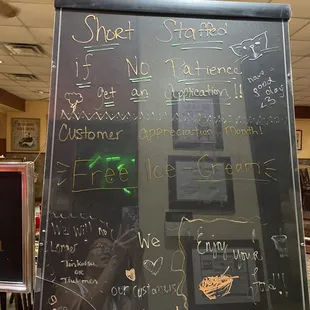 Short Staffed
if No Patience
get an Application!!
have a
good
day
<3
Customer appreciation Month!
Free Ice-Cream
We Will no
Longer
or
We
our customers
Enjoy
Your
food!!